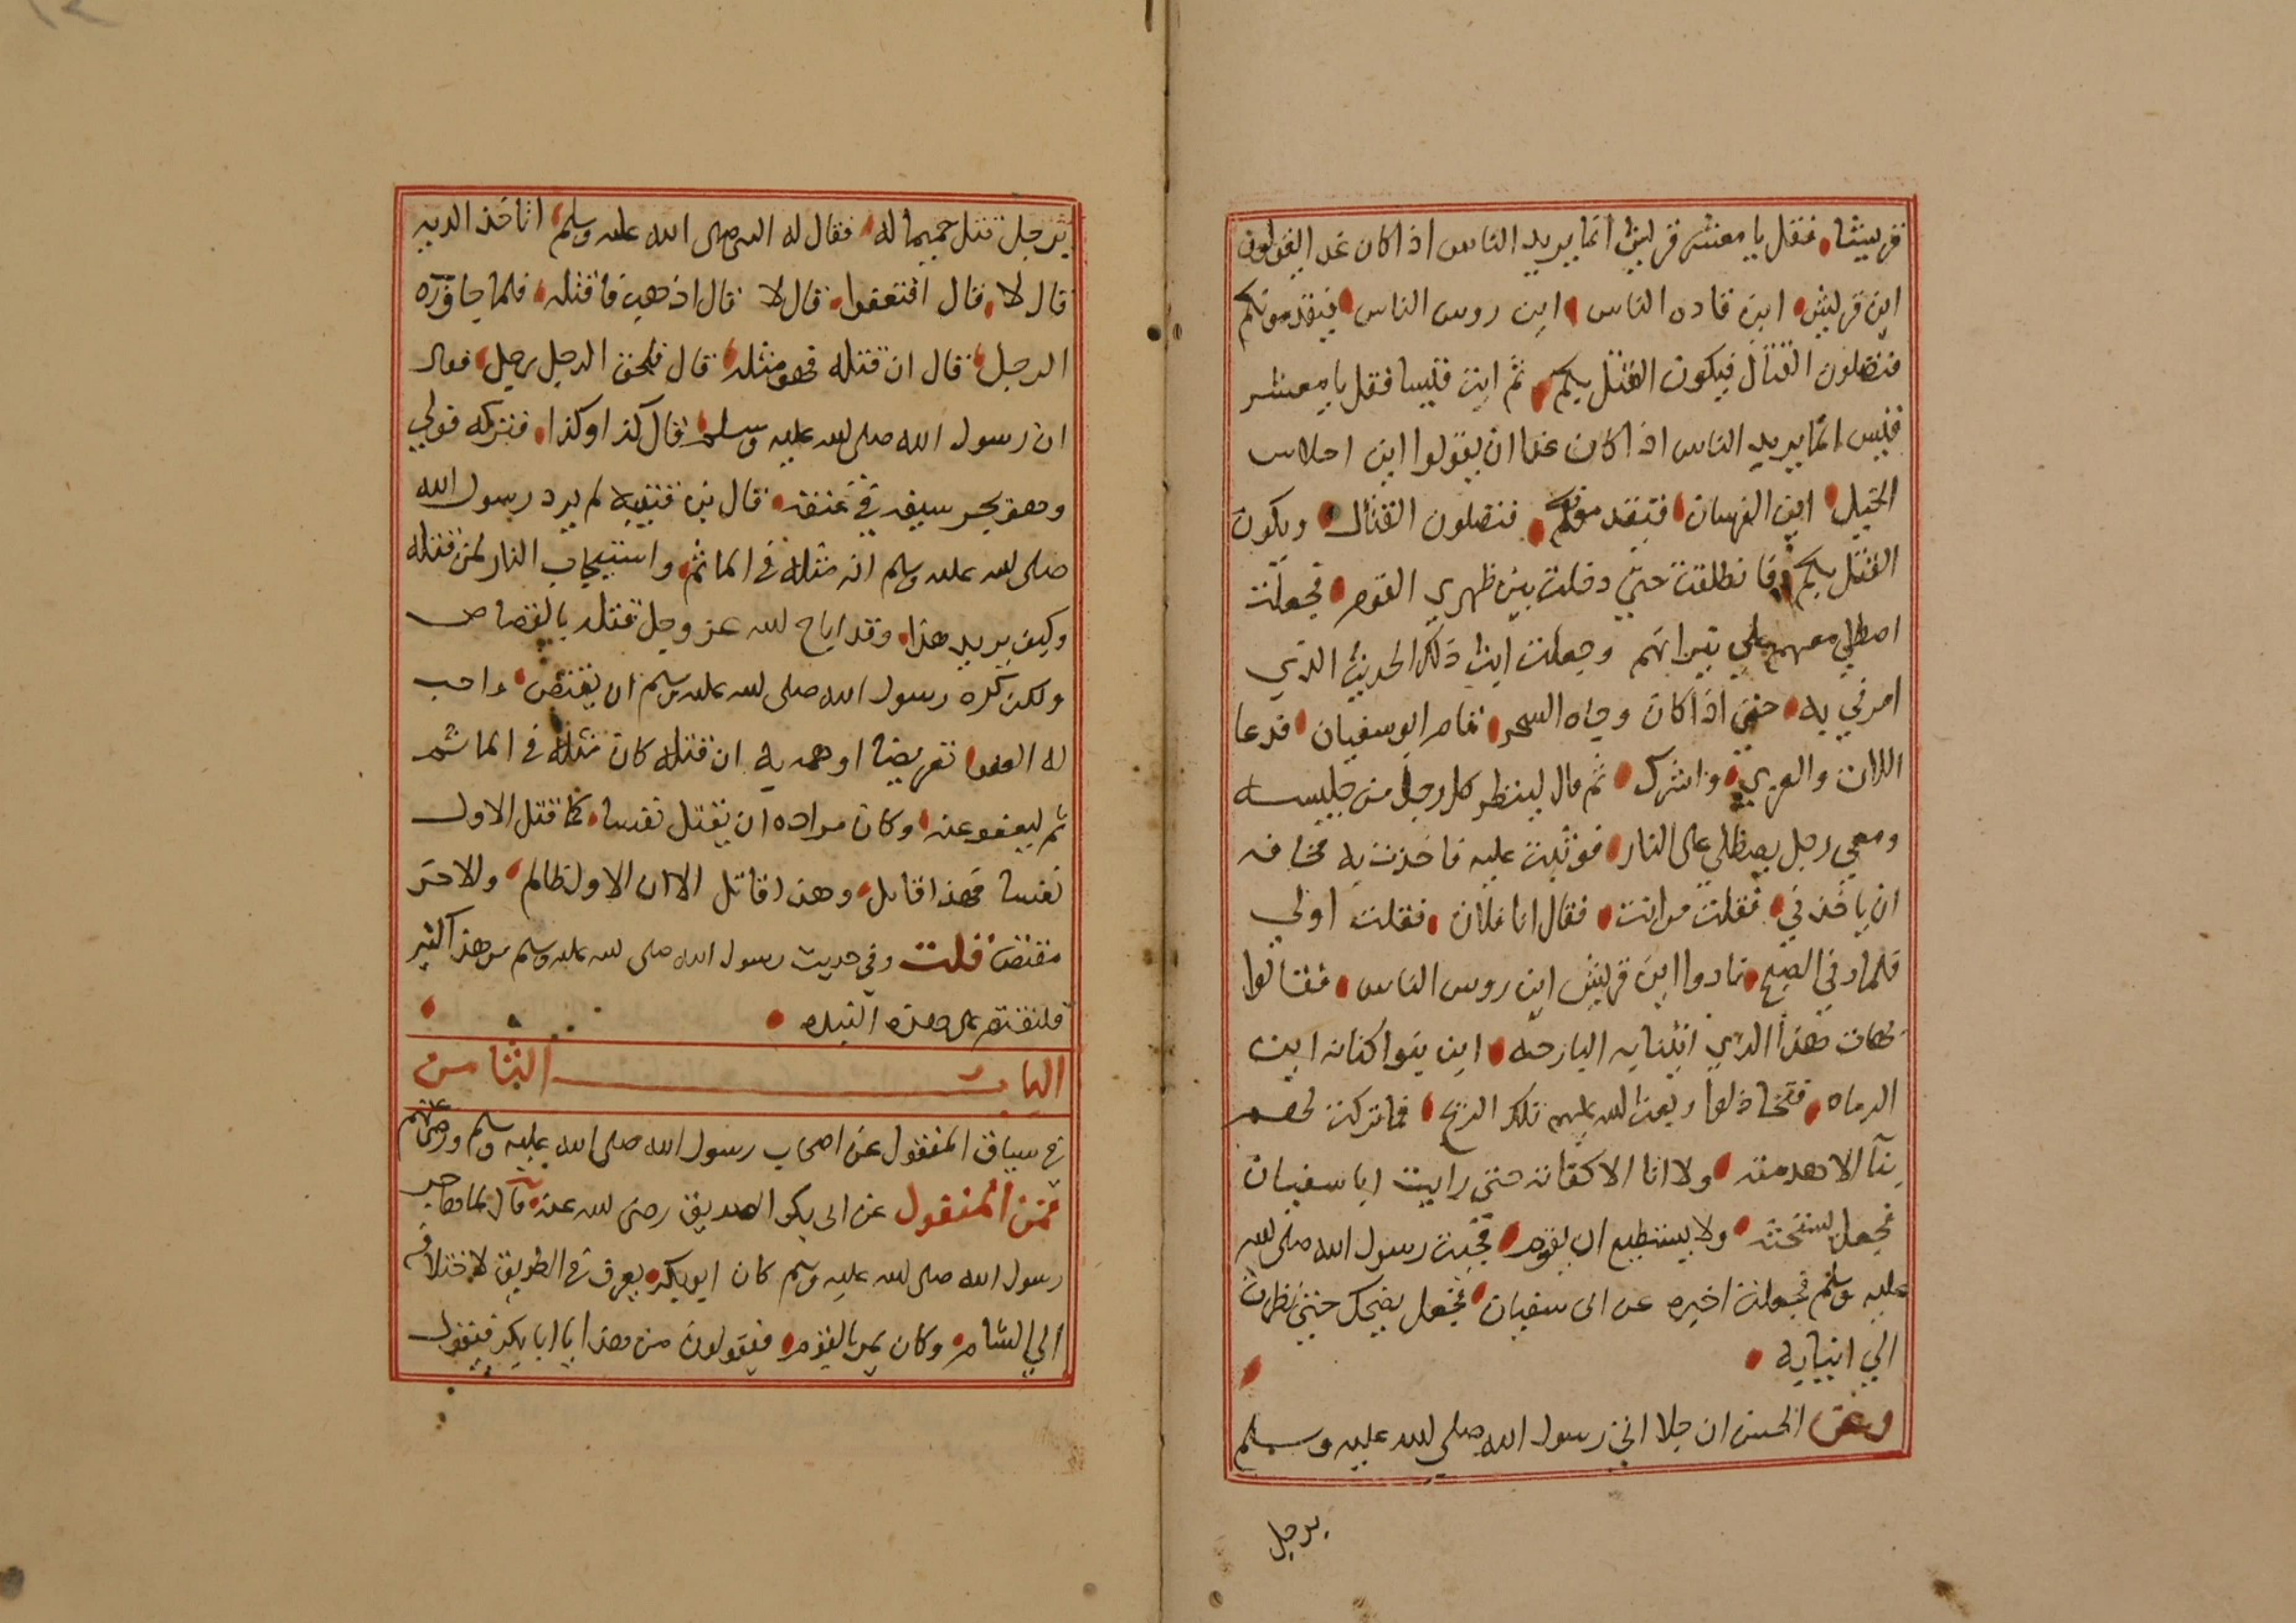 قريشا فقل يا معشر قريش انما يريد الناس اذا كان غد ايقولون
اين قريش اين قاده الناس اين روس الناس فيقدمونكم
فتصلون القتال فيكون القتل بكم ثم ايت قيسا فقل يا معشر
قيس انما يريد الناس اذا كان غدا ان يقولوا اين احلاس
الخيل اين الفرسان فيقدمونكم فتصلون القتال ويكون
القتل بكم فانطلقت حتي دخلت بين ظهري القوم فجعلت
اصطلي معهم علي نيرانهم وجعلت ابث ذلك الحديث الذي
امرني به حتي اذا كان وجاه السحر قام ابو سفيان فدعا
اللات والعزي واشرك ثم قال لينظر كل رجل من جليسه
ومعي رجل يصطلي على النار فوثبت عليه فاخذت به مخافه
ان ياخذني فقلت من انت فقال انا فلان فقلت اولي
فلما دني الصبح نادوا اين قريش اين روس الناس فقالوا
هيهات هذا الذي اتينا به البارحه اين بنوا كنانه اين
الرماه فتخاذلوا وبعث الله عليهم تلك الريح فما تركت لهم
بنآ الا هدمته ولا انا الا كفاته حتي رايت ابا سفيان
فجعل يستحثه ولا يستطيع ان يقوم فجيت رسول الله صلى الله
عليه وسلم فجعلت اخبره عن ابى سفيان فجعل يضحك حتي نظرت
الي انيابه
وعن الحسن ان رجلا اتي رسول الله صلي الله عليه وسلم
برجل
برجل قتل حميما له فقال له النبى صلى الله عليه وسلم اتاخذ الديه
قال لا قال افتعفوا قال لا قال اذهب فاقتله فلما جاوزه
الرجل قال ان قتله فهو مثله قال فلحق الرجل رجل فقال
ان رسول الله صلى الله عليه وسلم قال كذا وكذا فتركه فولي
وهو يجر سيفه في عنقه قال بن قتيبه لم يرد رسول الله
صلى الله عليه وسلم انه مثله في الماثم واستيجاب النار لمن قتله
وكيف يريد هذا وقد اباح الله عز وجل قتله بالقصاص
ولكن كره رسول الله صلى الله عليه وسلم ان يقتص واحب
له العفو تعريضا اوهمه به ان قتله كان مثله في الماثم
ثم ليعفو عنه وكان مراده ان يقتل نفسا كما قتل الاول
نفسا فهذا قاتل وهذا قاتل الا ان الاول ظالم والاخر
مقتص قلت وفي حديث رسول الله صلى الله عليه وسلم من هذا كثير
فلنقتصر على هذه النبذه
الباب الثامن
في سياق المنقول عن اصحاب رسول الله صلى الله عليه وسلم ورضى عنهم
فمن المنقول عن ابى بكر الصديق رضى الله عنه قال لما هاجر
رسول الله صلى الله عليه وسلم كان ابو بكر يعرف في الطريق لاختلافه
الي الشام وكان يمر بالقوم فيقولون من هذا يا ابا بكر فيقول